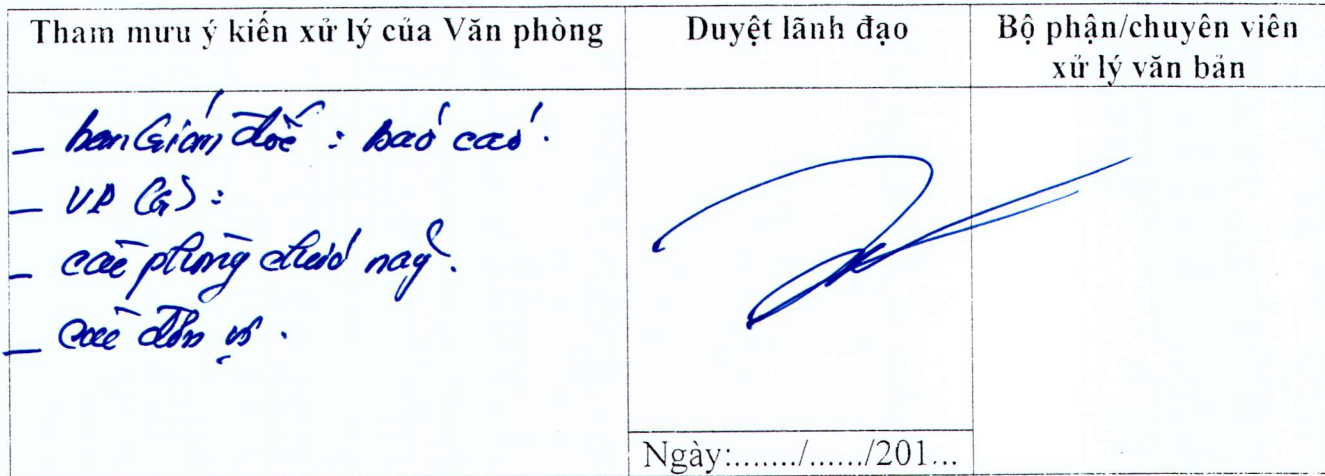 Tham mưu ý kiến xử lý của Văn phòng
Duyệt lãnh đạo
Bộ phận/chuyên viên
xử lý văn bản
– ban Giám đốc : báo cáo.
– VP
– các phòng
– các đơn vị.
Ngày:......./....../201...